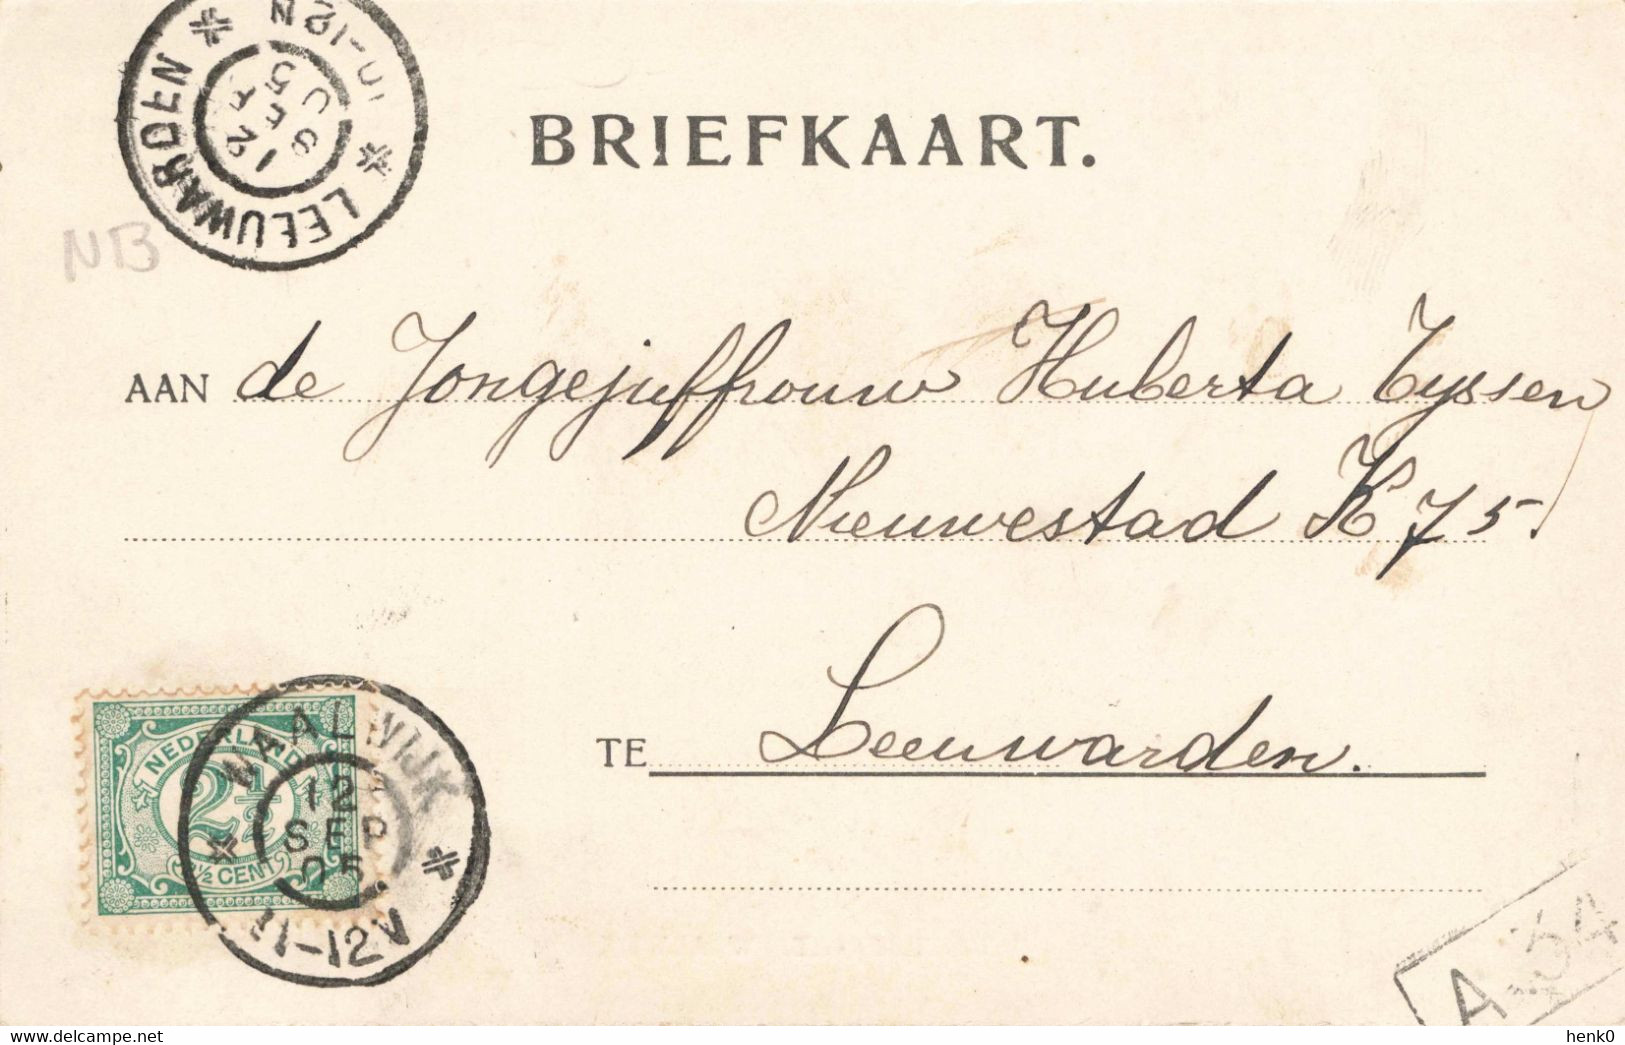 LEEUWARDEN
12 SEP 05
10-12N
BRIEFKAART.
NB
AAN de Jongejuffrouw Huberta Tyssen
Nieuwestad K 75.
TE Leeuwarden.
NEDERLAND
2½
2½ CENT
WAALWIJK
12 SEP 05
11-12V
A 34
henk0